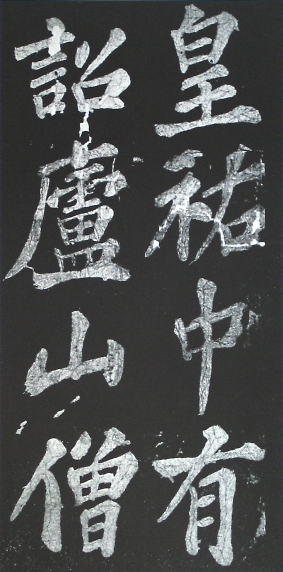 皇祐中有
詔廬山僧